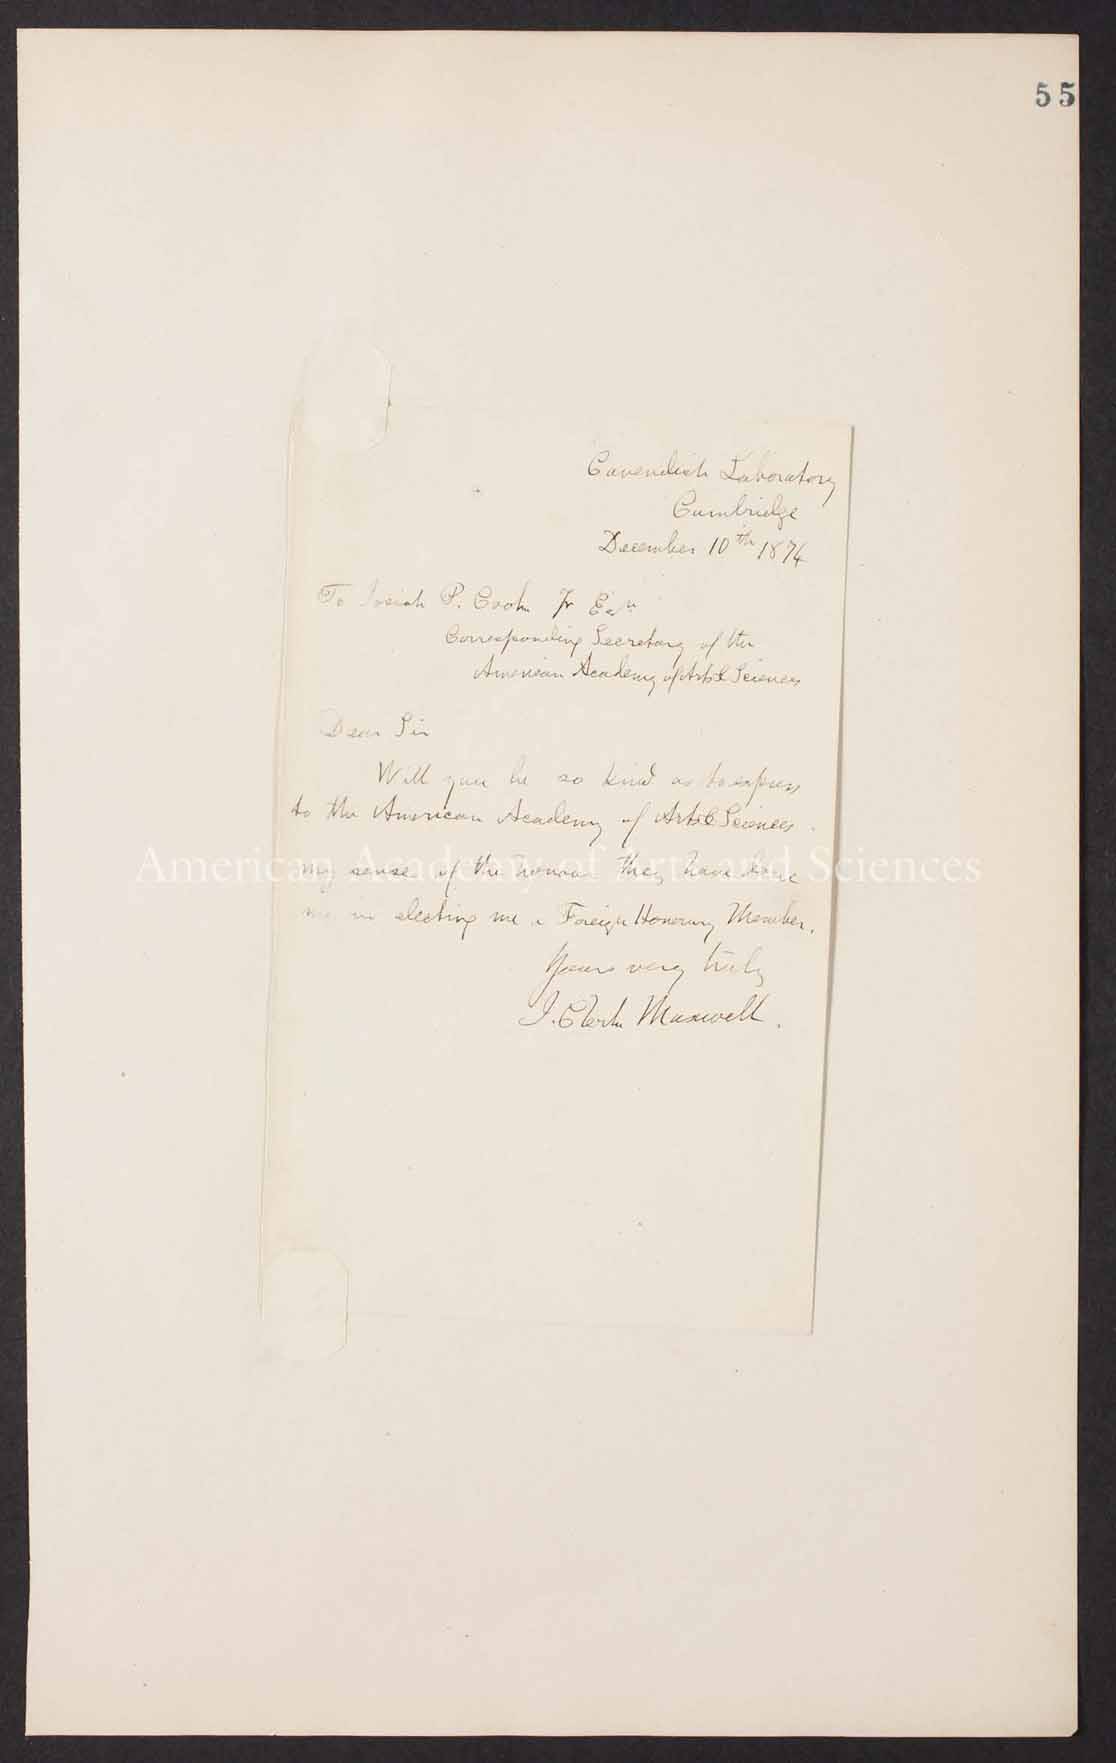 55
Cavendish Laboratory
Cambridge
December 10th 1874
To Josiah P. Cooke Jr Esqre
Corresponding Secretary of the
American Academy of Arts & Sciences
Dear Sir
Will you be so kind as to express
to the American Academy of Arts & Sciences
American Academy of Arts and Sciences
my sense of the honour they have done
me in electing me a Foreign Honorary Member.
Yours very truly
J. Clerk Maxwell.